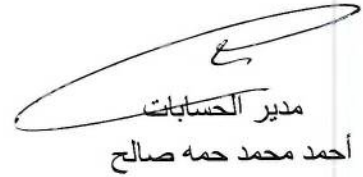 مدير الحسابات
أحمد محمد حمه صالح